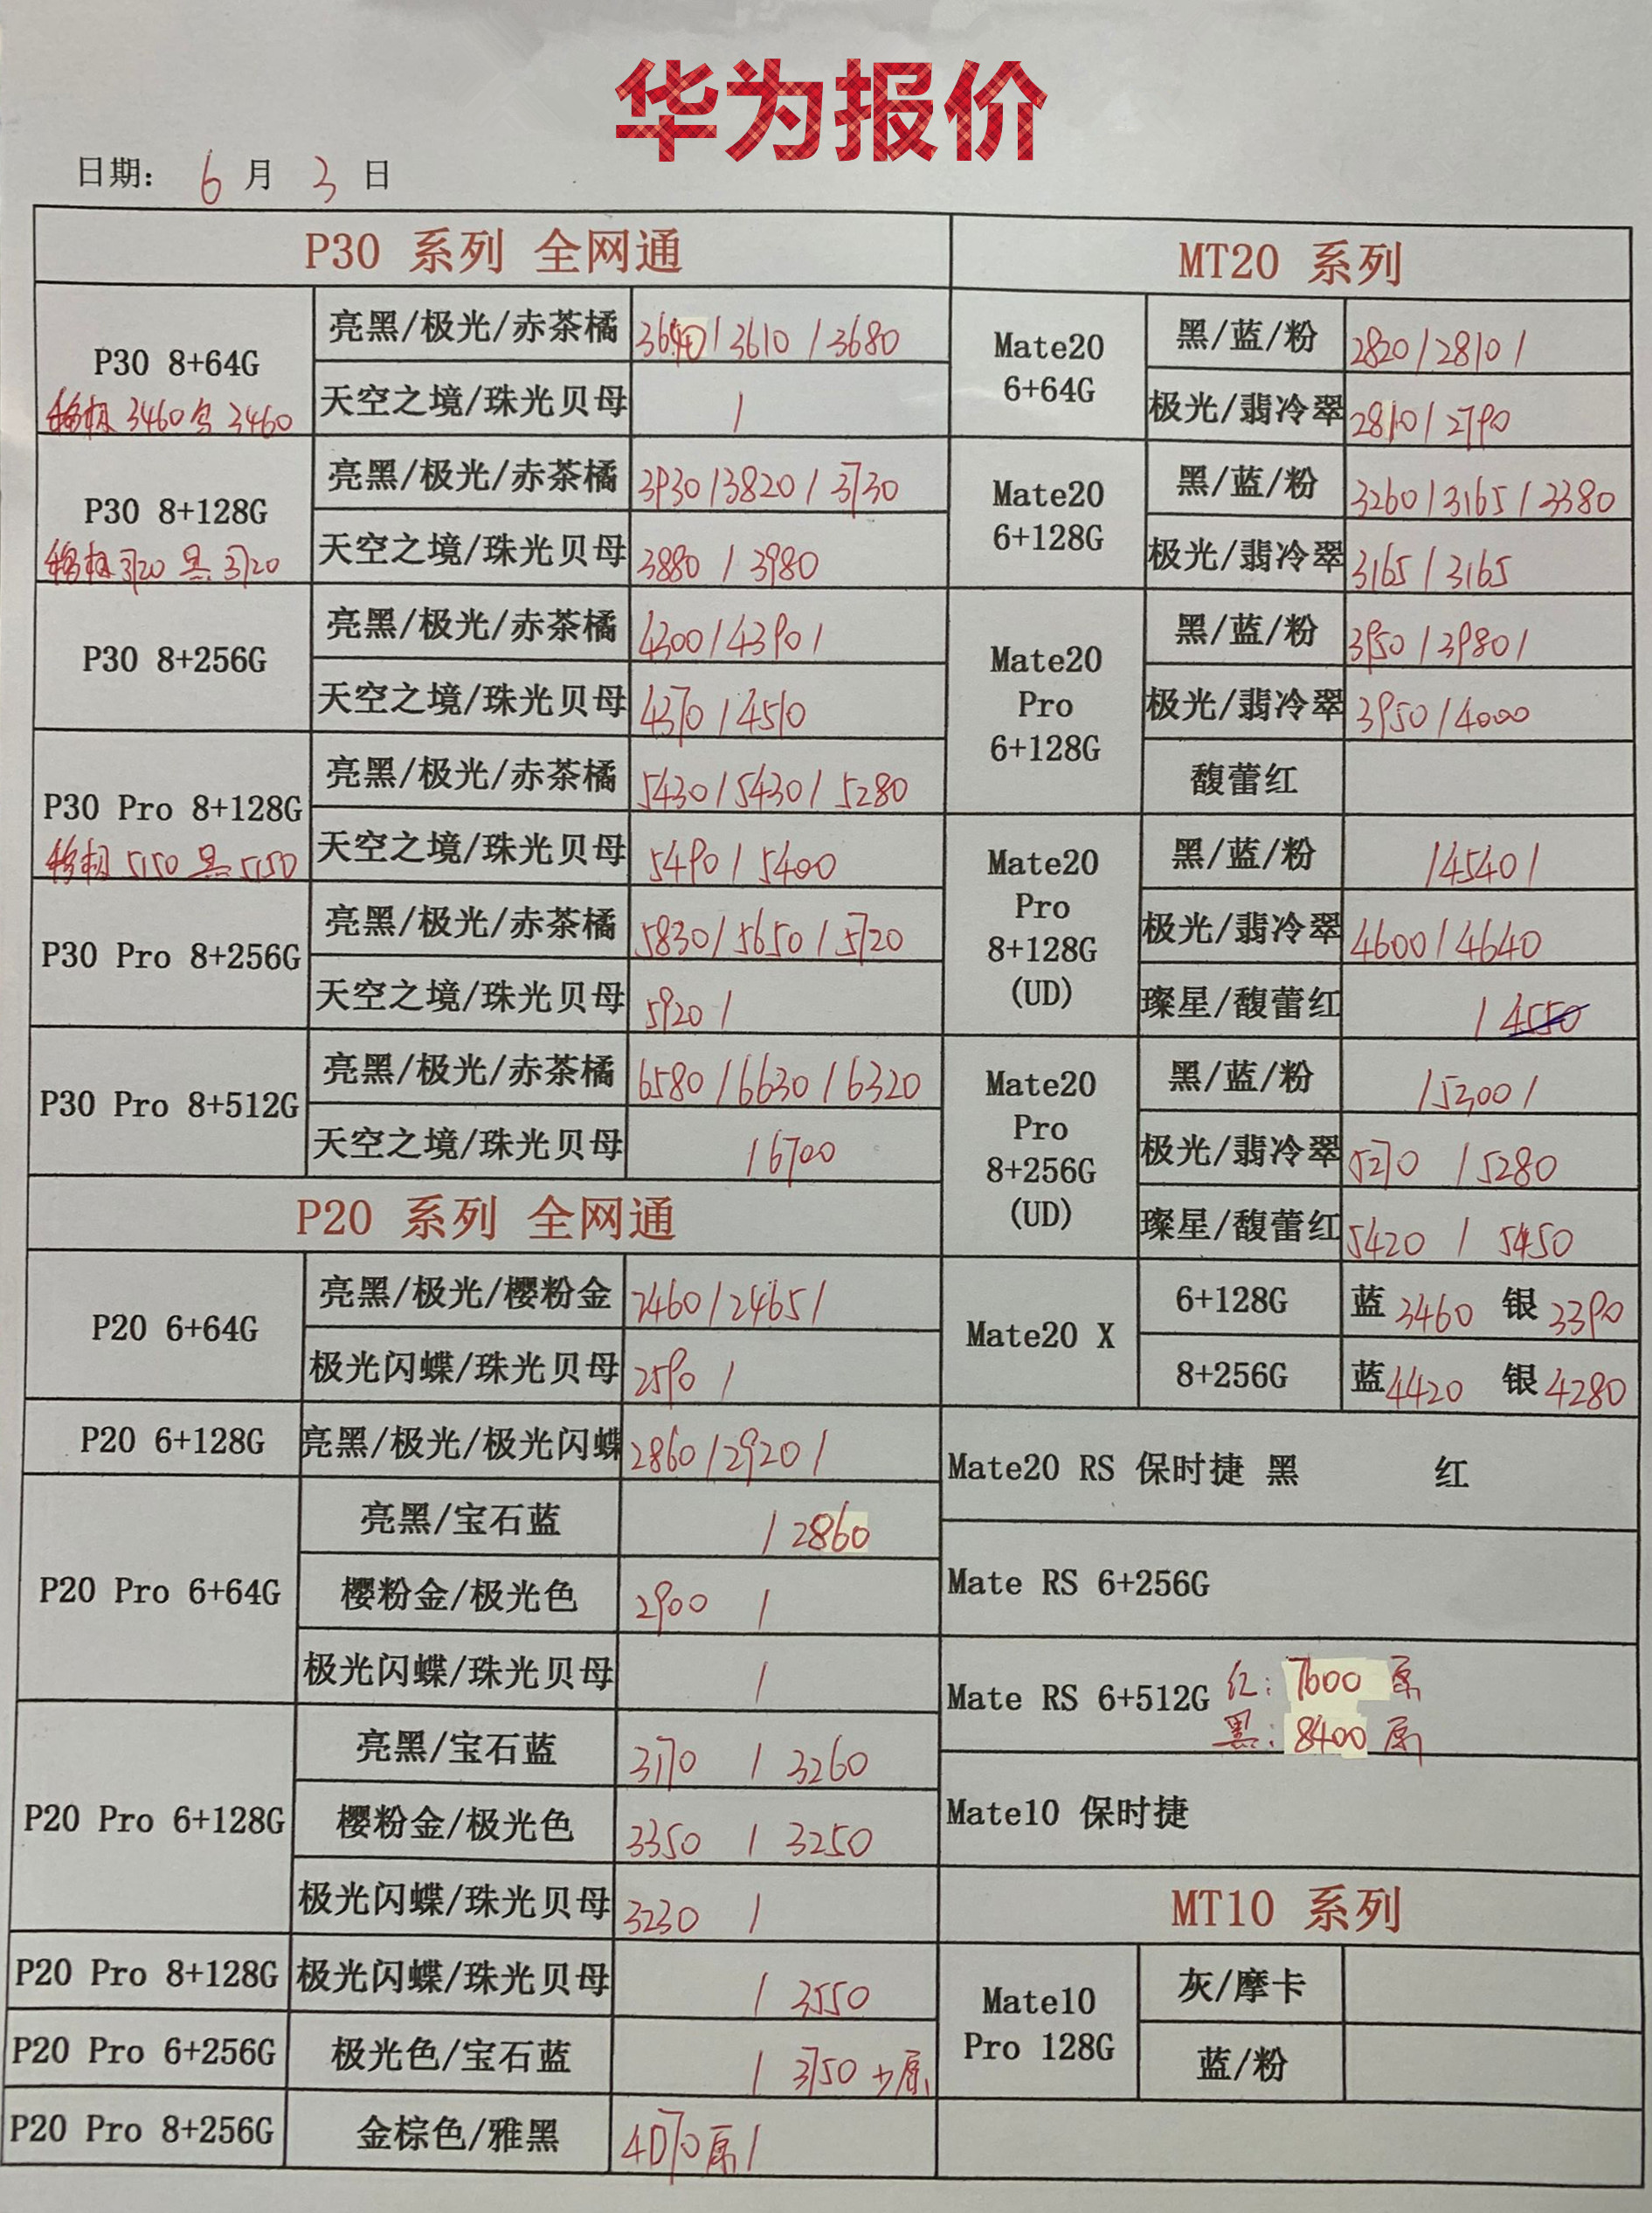 华为报价
日期: 6 月 3 日
P30 系列 全网通
P30 8+64G
3460 3460
亮黑/极光/赤茶橘 3640/3610/3680
天空之境/珠光贝母 /
P30 8+128G
3720 黑 3720
亮黑/极光/赤茶橘 3930/3820/3730
天空之境/珠光贝母 3880/3980
P30 8+256G
亮黑/极光/赤茶橘 4300/4390/
天空之境/珠光贝母 4370/4510
P30 Pro 8+128G
5150 黑 5150
亮黑/极光/赤茶橘 5430/5430/5280
天空之境/珠光贝母 5490/5400
P30 Pro 8+256G
亮黑/极光/赤茶橘 5830/5650/5720
天空之境/珠光贝母 5920/
P30 Pro 8+512G
亮黑/极光/赤茶橘 6580/6630/6320
天空之境/珠光贝母 /6700
P20 系列 全网通
P20 6+64G
亮黑/极光/樱粉金 2460/2465/
极光闪蝶/珠光贝母 2590/
P20 6+128G 亮黑/极光/极光闪蝶 2860/2920/
P20 Pro 6+64G
亮黑/宝石蓝 /2860
樱粉金/极光色 2900/
极光闪蝶/珠光贝母 /
P20 Pro 6+128G
亮黑/宝石蓝 3170/3260
樱粉金/极光色 3350/3250
极光闪蝶/珠光贝母 3230/
P20 Pro 8+128G 极光闪蝶/珠光贝母 /3550
P20 Pro 6+256G 极光色/宝石蓝 /3750
P20 Pro 8+256G 金棕色/雅黑 4070 /
MT20 系列
Mate20
6+64G
黑/蓝/粉 2820/2810/
极光/翡冷翠 2810/2790
Mate20
6+128G
黑/蓝/粉 3260/3165/3380
极光/翡冷翠 3165/3165
Mate20
Pro
6+128G
黑/蓝/粉 3950/3980/
极光/翡冷翠 3950/4000
馥蕾红
Mate20
Pro
8+128G
(UD)
黑/蓝/粉 /4540/
极光/翡冷翠 4600/4640
璨星/馥蕾红 /4550
Mate20
Pro
8+256G
(UD)
黑/蓝/粉 /5300/
极光/翡冷翠 5270/5280
璨星/馥蕾红 5420/5450
Mate20 X
6+128G 蓝 3460 银 3390
8+256G 蓝 4420 银 4280
Mate20 RS 保时捷 黑 红
Mate RS 6+256G
Mate RS 6+512G
红: 7600
黑: 8400
Mate10 保时捷
MT10 系列
Mate10
Pro 128G
灰/摩卡
蓝/粉